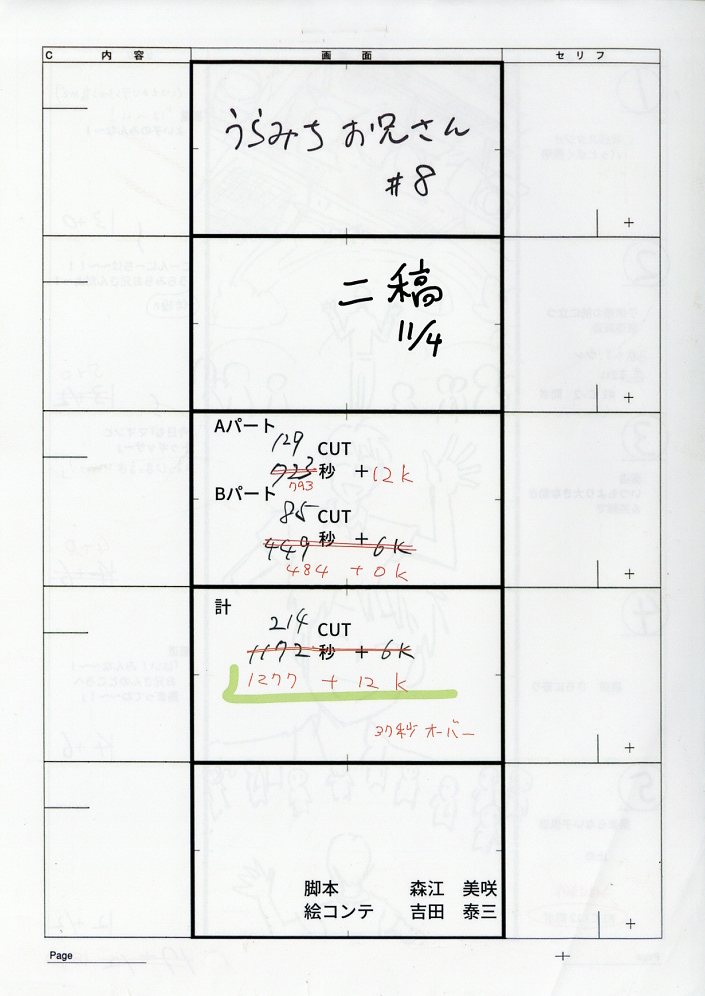 C 内容 画面 セリフ
うらみち お兄さん
#8
二稿
11/4
Aパート
129 CUT
723 秒 +12k
793
Bパート
85 CUT
449 秒 + 6k
484 + 0k
計
214 CUT
1172 秒 + 6k
1277 + 12k
37秒オーバー
脚本 森江 美咲
絵コンテ 吉田 泰三
Page